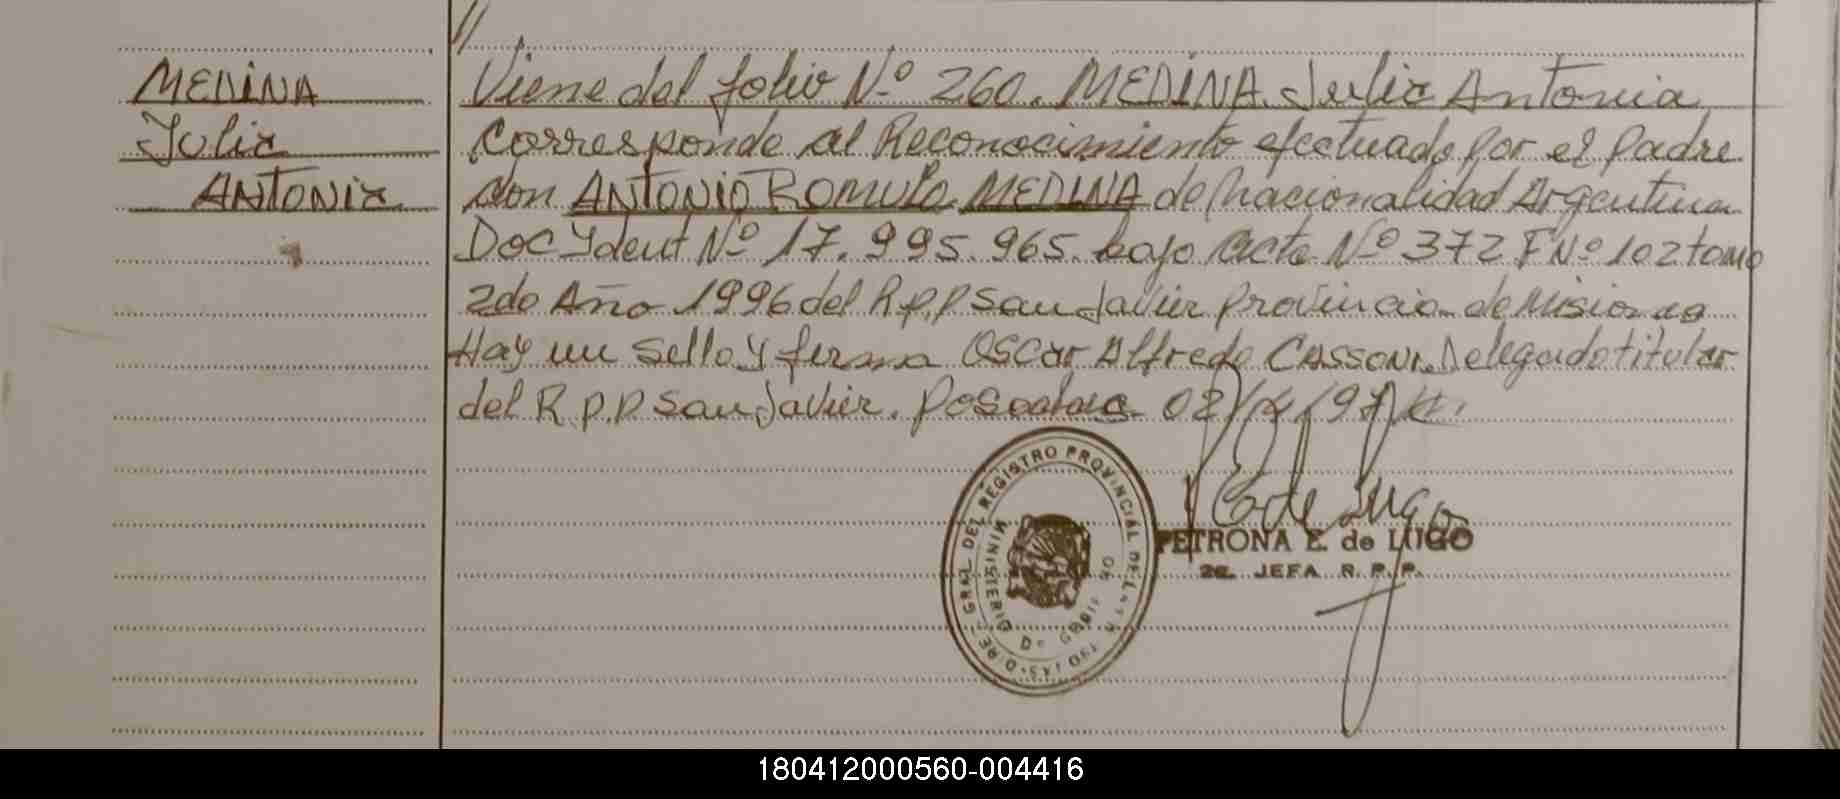 //
MEDINA
Julia
ANTONIA
Viene del folio Nº 260. MEDINA. Julia Antonia
Corresponde al Reconocimiento efectuado por el padre
don ANTONIO ROMULO MEDINA de nacionalidad Argentina
Doc Ydent Nº 17.995.965. bajo Acta Nº 372 F Nº 102 tomo
2do Año 1996 del R.p.p San Javier Provincia de Misiones
Hay un Sello y firma Oscar Alfredo CASSONI. Delegado titular
del R.p.p San Javier. Posadas 02/ /97
DIREC GRAL DEL REGISTRO PROVINCIAL DE LAS PERSONAS
MINISTERIO DE GOBIERNO
E de Lugo
PETRONA E. de LUGO
2a. JEFA R. P. P.
180412000560-004416